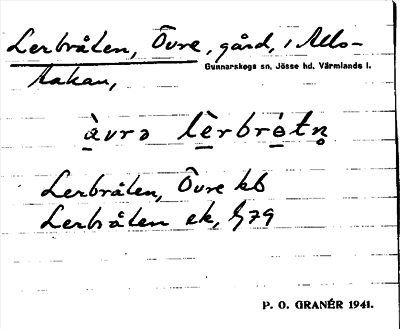 Lerbråten, Övre, gård, i Älls-
Gunnarskogs sn, Jösse hd, Värmlands l.
takan,
àvrə lèrbrótn̥
Lerbråten, Övre kb
Lerbråten ek, G79
P. O. GRANÉR 1941.